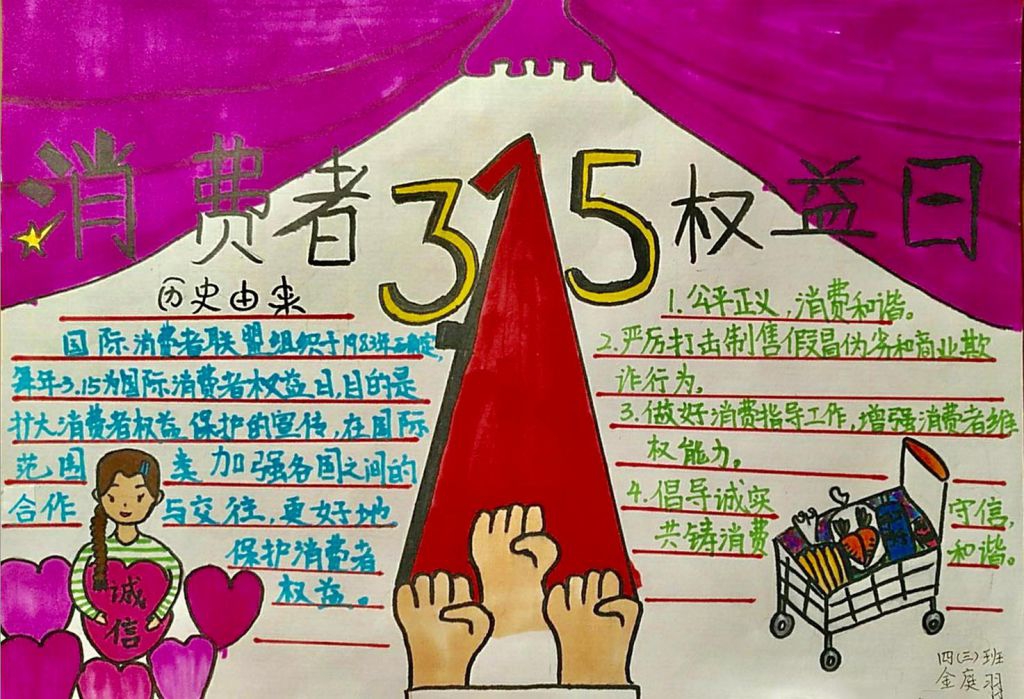 消费者315权益日
历史由来
国际消费者联盟组织于1983年确定,
每年3.15为国际消费者权益日,目的是
扩大消费者权益保护的宣传,在国际
范围类加强各国之间的
合作与交往,更好地
保护消费者
权益。
诚
信
1.公平正义,消费和谐。
2.严厉打击制售假冒伪劣和商业欺
诈行为。
3.做好消费指导工作,增强消费者维
权能力。
4.倡导诚实守信,
共铸消费和谐。
四(三)班
金庭羽